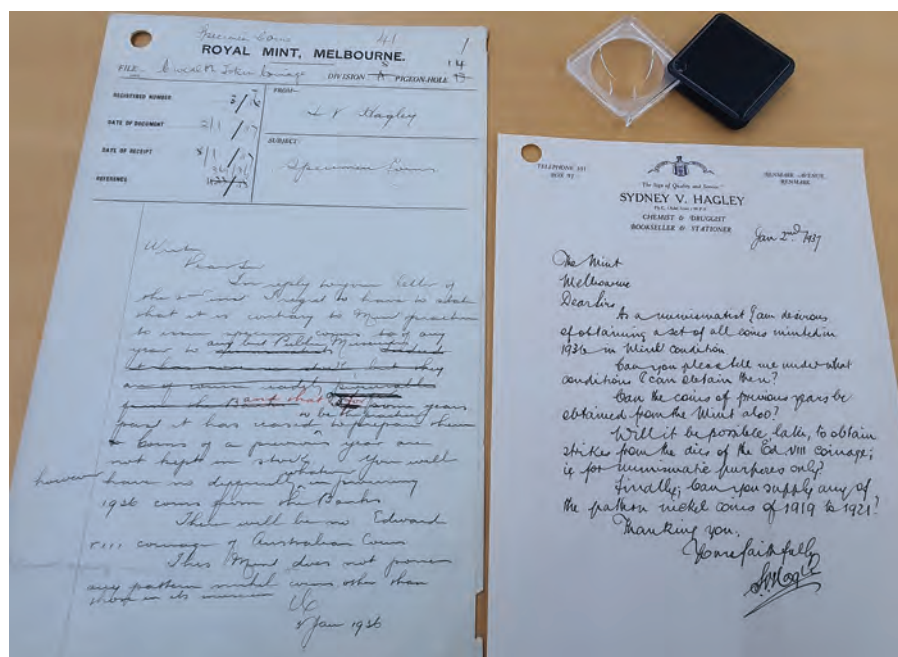 Specimen Coins
41
1
ROYAL MINT, MELBOURNE.
8 14
FILE Token Coinage DIVISION A PIGEON-HOLE 13
REGISTERED NUMBER
FROM—
V Hagley
DATE OF DOCUMENT 2/1/37
SUBJECT:
DATE OF RECEIPT 8/1/37
Specimen Coins
REFERENCE
Write
Dear Sir
In reply to your letter of
the 2nd inst I regret to have to state
that it is contrary to Mint practice
to issue specimen coins to any
year to any but Public Museums
it has never in stock, but they
are of course
from the Banks and that for some years
to be the practice
past it has ceased to prepare them
Coins of a previous year are
not kept in stock. You will
however have no difficulty whatever in procuring
1936 coins from the Banks
There will be no Edward
VIII coinage of Australian Coins
This Mint does not possess
any pattern nickel coins other than
those in its museum
8 Jan 1936
TELEPHONE
BOX
RENMARK AVENUE
RENMARK
The Sign of Quality and Service
SYDNEY V. HAGLEY
CHEMIST & DRUGGIST
BOOKSELLER & STATIONER
Jan 2nd 1937
The Mint
Melbourne
Dear Sirs
As a numismatist I am desirous
of obtaining a set of all coins minted in
1936 in Mint condition
Can you please tell me under what
conditions I can obtain them?
Can the coins of previous years be
obtained from the Mint also?
Will it be possible later, to obtain
strikes from the dies of the Ed VIII coinage;
ie for numismatic purposes only?
Finally, can you supply any of
the pattern nickel coins of 1919 to 1921?
Thanking you,
Yours faithfully
S.V.Hagley